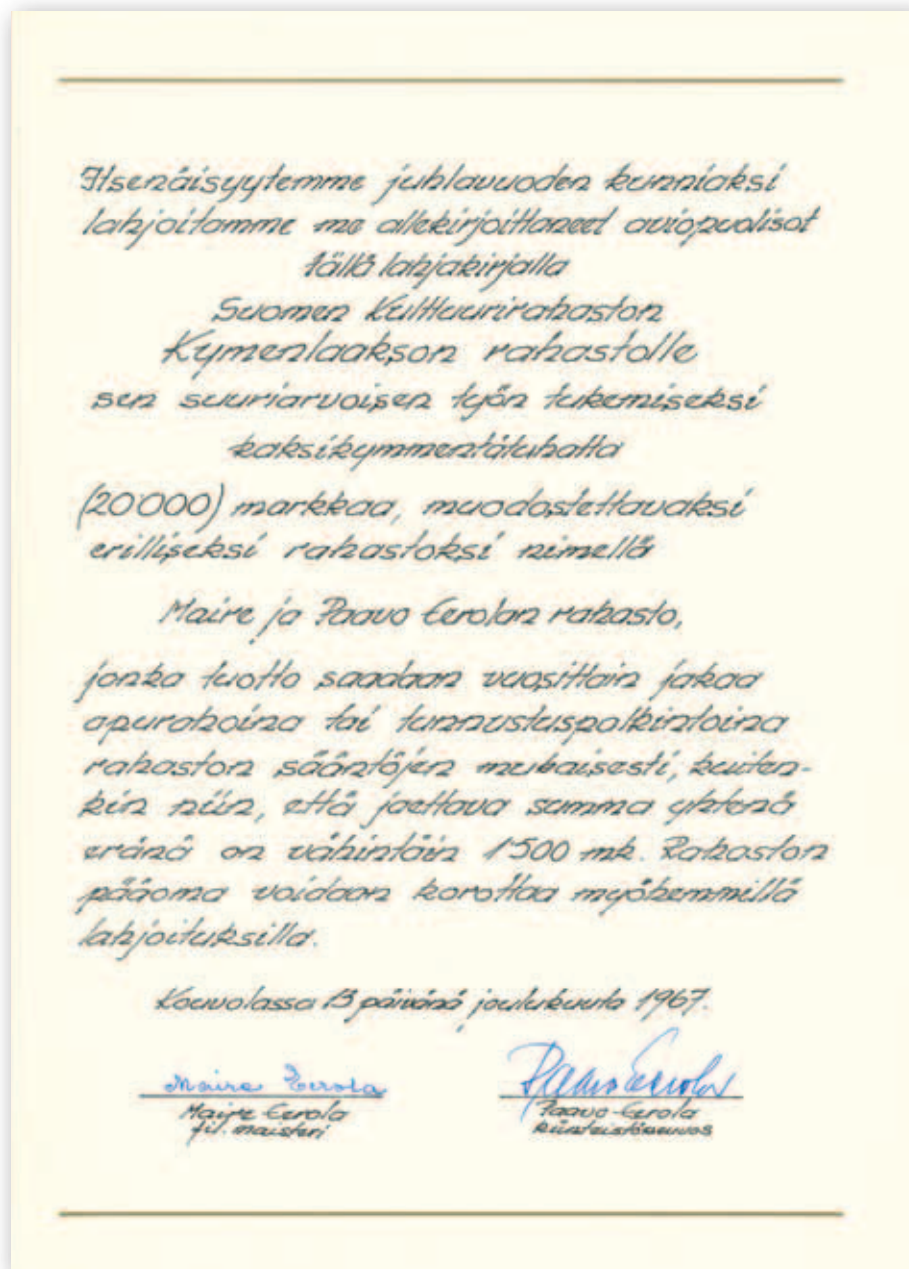 Itsenäisyytemme juhlavuoden kunniaksi
lahjoitamme me allekirjoittaneet aviopuolisot
tällä lahjakirjalla
Suomen Kulttuurirahaston
Kymenlaakson rahastolle
sen suuriarvoisen työn tukemiseksi
kaksikymmentätuhatta
(20000) markkaa, muodostettavaksi
erilliseksi rahastoksi nimellä
Maire ja Paavo Eerolan rahasto,
jonka tuotto saadaan vuosittain jakaa
apurahoina tai tunnustuspalkintoina
rahaston sääntöjen mukaisesti, kuiten-
kin niin, että jaettava summa yhtenä
eränä on vähintäin 1500 mk. Rahaston
pääoma voidaan korottaa myöhemmillä
lahjoituksilla.
Kouvolassa 13 päivänä joulukuuta 1967.
Maire Eerola
Paavo Eerola
Maire Eerola
Paavo Eerola
fil. maisteri
kiinteistöneuvos